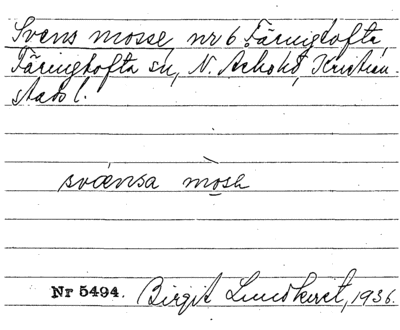 Svens mosse, nr 6 Färingtofta,
Färingtofta sn, N. Åsbohd, Kristian-
stads l.
svænsa mosh
Nr 5494. Birgit Lundkvist, 1936.